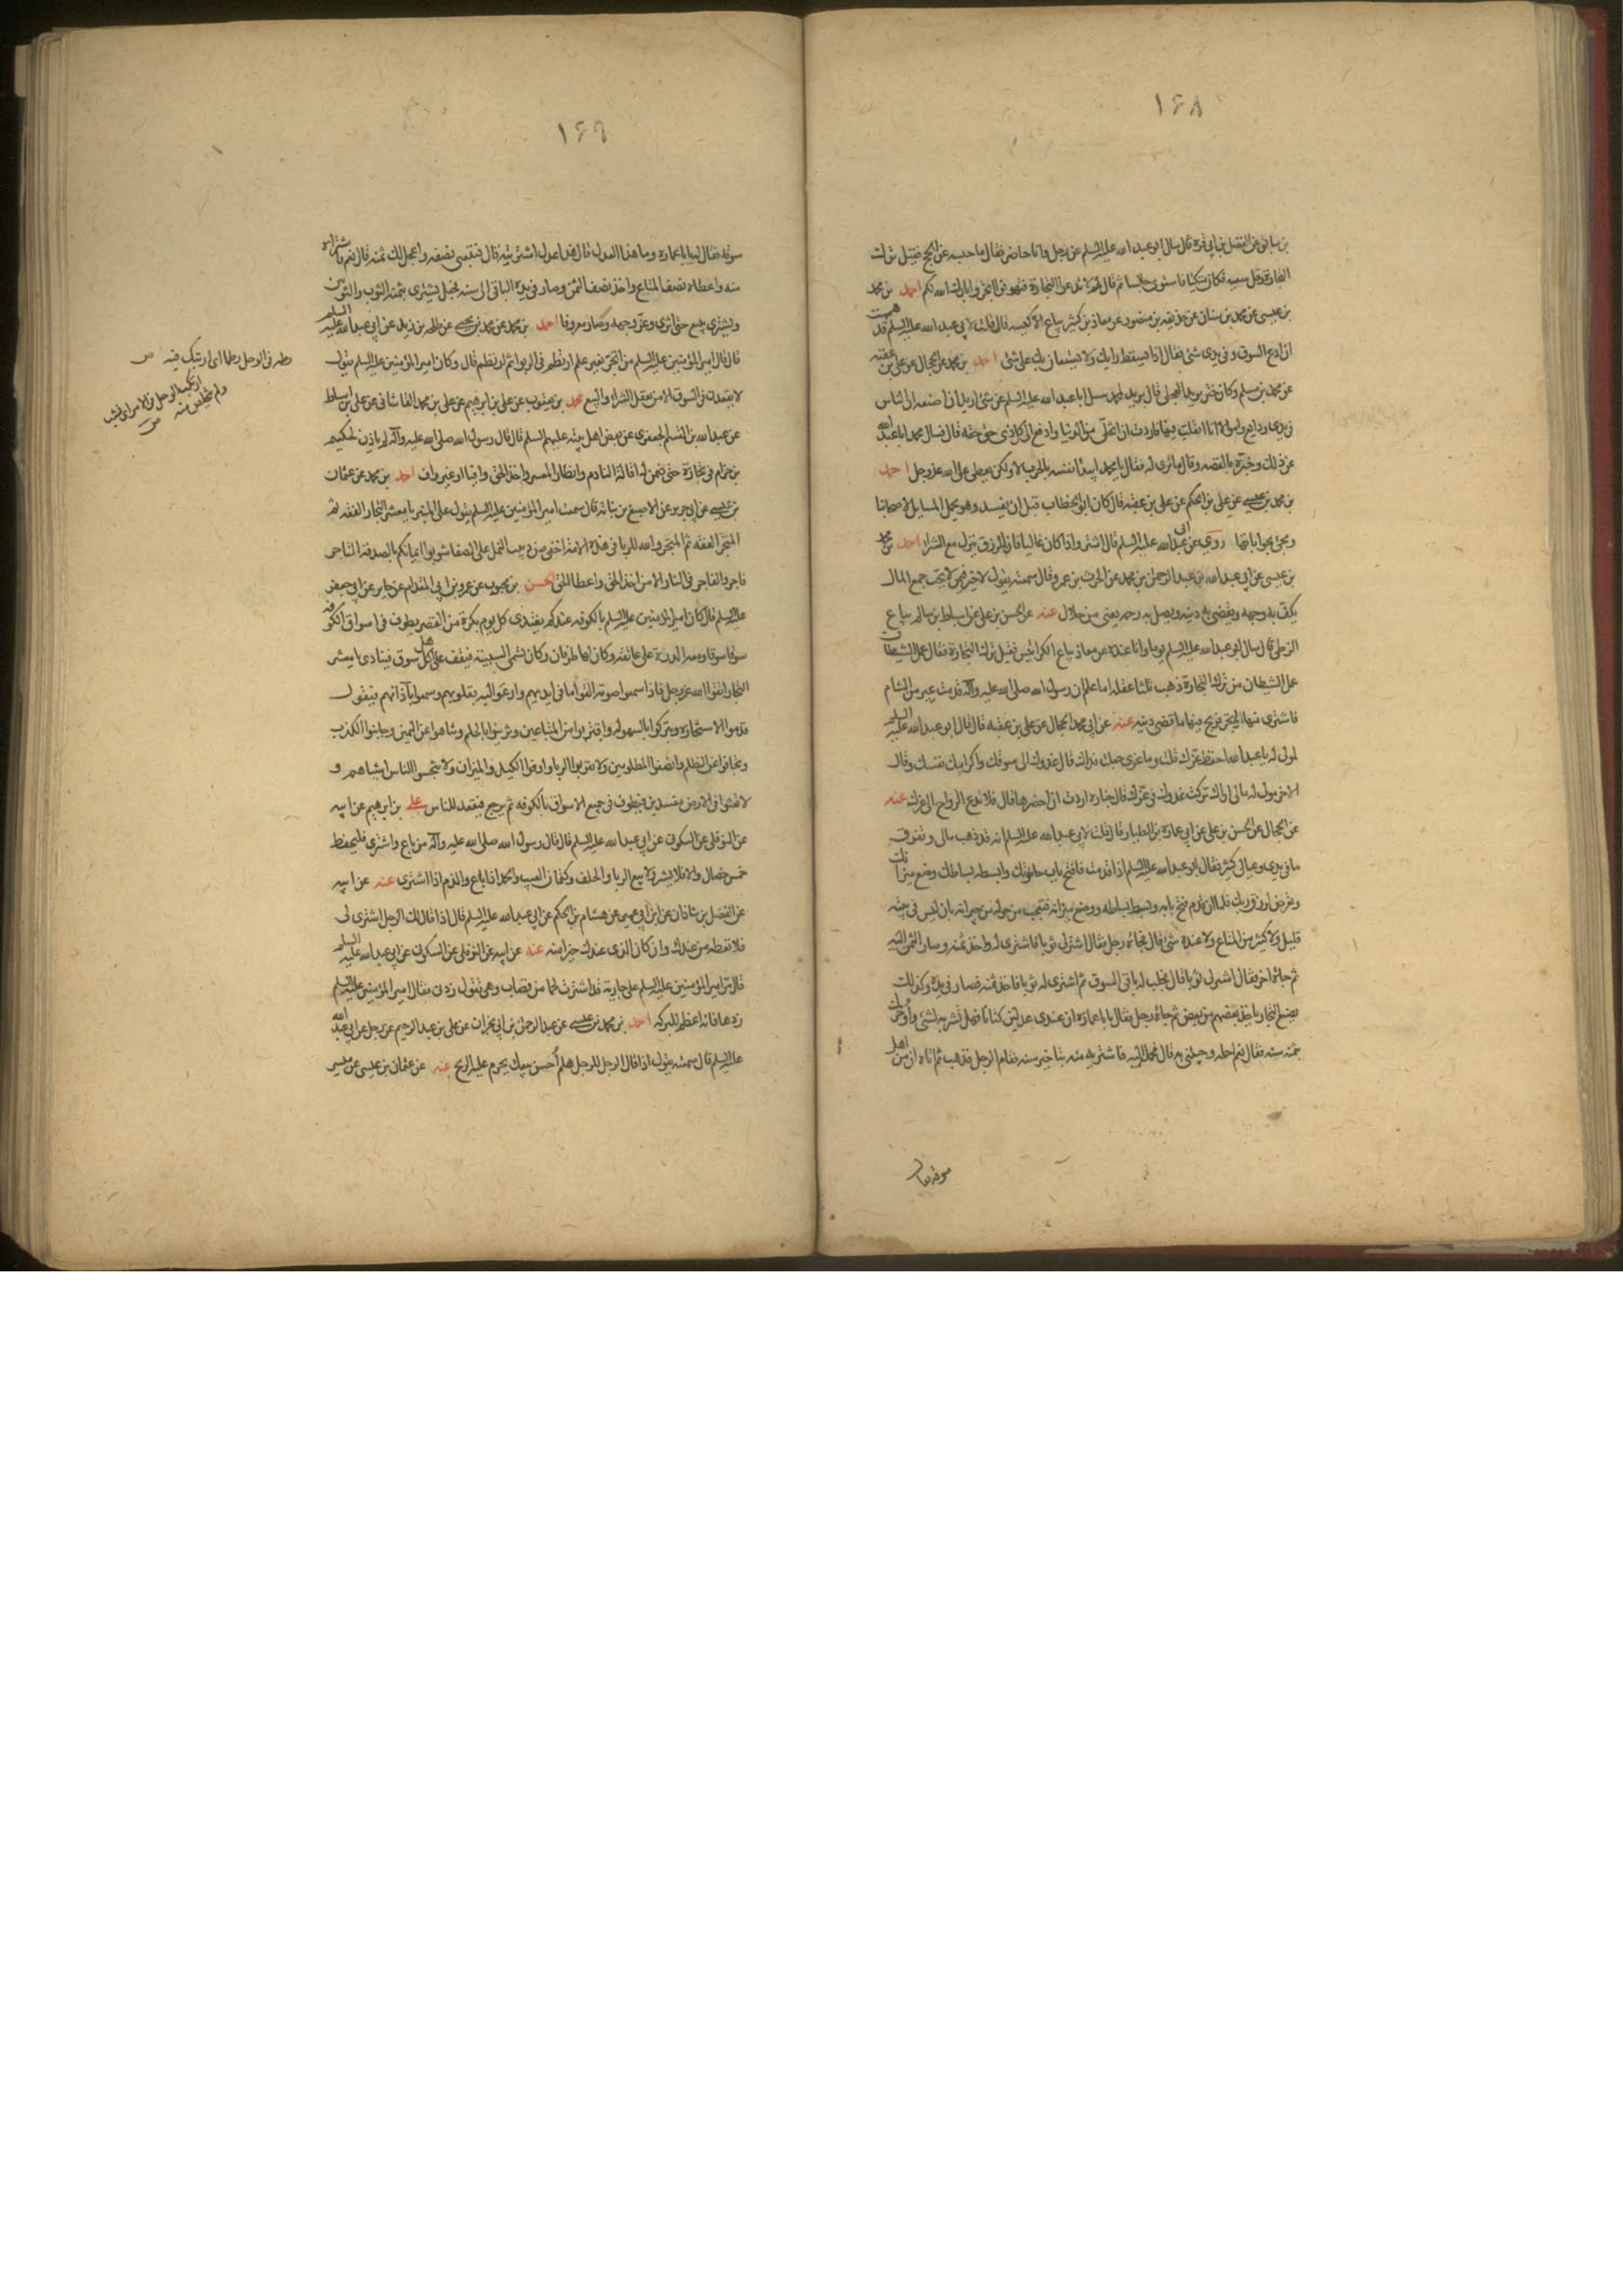 ١۶٨
بن سابق عن الفضل بن ابي قرة قال سال ابو عبد الله عليه السلم عن رجل وانا حاضر فقال ما حبسه عن الحج فقيل ترك
التجارة وقل سعيه فكان متكيا فاستوى جالسا ثم قال لهم لا تدعوا التجارة فتهونوا اتجروا بارك الله لكم احمد بن محمد
بن عيسى عن محمد بن سنان عن حذيفه بن منصور عن معاذ بن كثير بياع الاكيسه قال قلت لابي عبد الله عليه السلم قد هممت
ان ادع السوق وفي يدي شئ فقال اذا يسقط رايك ولا يستعان بك على شئ احمد بن محمد عن الحجال عن علي بن عقبه
عن محمد بن مسلم وكان ختن بريد العجلي قال بريد لمحمد سل لي ابا عبد الله عليه السلم عن شئ اريد ان اصنعه ان للناس
في يدي ودايع واموالا انا اتقلب فيها فاردت ان اتخلى من الدنيا وادفع الى كل ذي حق حقه قال فسال محمد ابا عبد الله
عن ذلك وخبره بالقصه وقال ما ترى له فقال يا محمد ايبدا نفسه بالحرب لا ولكن يعطي على الله عز وجل احمد
بن محمد بن عيسى عن علي بن الحكم عن علي بن عقبه قال كان ابو الخطاب قبل ان يفسد وهو يحمل المسايل لاصحابنا
ويجئ بجواباتها روى عن ابي عبد الله عليه السلم قال اشتروا واذا كان غاليا فان الرزق ينزل مع الشرا احمد بن محمد
بن عيسى عن ابي عبد الله عن عبد الرحمن بن محمد عن الحرث بن عمرو قال سمعته يقول لا خير فيمن لا يحب جمع المال
يكف به وجهه ويقضي به دينه ويصل به رحمه يعني من حلال عنه عن الحسن بن علي عن اسباط بن سالم بياع
الزطي قال سال ابو عبد الله عليه السلم يوما وانا عنده عن معاذ بياع الكرابيس فقيل ترك التجارة فقال عمل الشيطان
عمل الشيطان من ترك التجارة ذهب ثلثا عقله اما علم ان رسول الله صلى الله عليه وآله قدمت عير من الشام
فاشترى منها واتجر فربح فيها ما قضى دينه عنه عن ابي محمد الحجال عن علي بن عقبه قال قال ابو عبد الله عليه السلم
لمولى له يا عبد الله احفظ عزك قلت وما عزي جعلت فداك قال غدوك الى سوقك واكرامك نفسك وقال
لاخر مولى له مالي اراك تركت غدوك في عزك قال جنازة اردت ان احضرها قال فلا تدع الرواح الى عزك عنه
عن الحجال عن الحسن بن علي عن ابي عمارة بن الطيار قال قلت لابي عبد الله عليه السلم انه قد ذهب مالي وتفرق
ما في يدي وعيالي كثير فقال ابو عبد الله عليه السلم اذا قدمت فافتح باب حانوتك وابسط بساطك وضع ميزانك
وتعرض لرزق ربك فلما ان قدم فتح بابه وبسط بساطه ووضع ميزانه فتعجب من حوله من جيرانه بان ليس في بيته
قليل ولا كثير من المتاع ولا عنده شئ قال فجائه رجل فقال اشتر لي ثوبا فاشترى له واخذ ثمنه وصار الثمن اليه
ثم جائه اخر فقال اشتر لي ثوبا قال فجلب له باقي السوق ثم اشترى له ثوبا فاخذ ثمنه فصار في يده وكذلك
يصنع التجار ياخذ بعضهم من بعض ثم جائه رجل فقال يا با عمارة ان عندي عدلين كتانا فهل تشتريه بشئ واوخرك
بثمنه سنه فقال نعم احمله وجئني به قال فحمله اليه فاشتريه منه بتاخير سنه فقام الرجل فذهب ثم اتاه ات من اهل
سوقه فقال
١۶٩
سوقه فقال له يا با عمارة وما هذا العدل قال هذا عدل اشتريته قال فتبيعني نصفه واعجل لك ثمنه قال نعم فاشتراه
منه واعطاه نصف المتاع واخذ نصف الثمن وصار في يده الباقي الى سنه فجعل يشتري بثمنه الثوب والثوبين
ويشتري ويبيع حتى اثرى وعز وجهه وصار معروفا احمد بن محمد عن محمد بن يحيى عن طلحه بن زيد عن ابي عبد الله عليه السلم
قال قال امير المؤمنين عليه السلم من اتجر بغير علم ارتطم في الربوا ثم ارتطم قال وكان امير المؤمنين عليه السلم يقول
لا يقعدن في السوق الا من يعقل الشراء والبيع محمد بن يعقوب عن علي بن ابرهيم عن علي بن محمد القاشاني عن علي بن اسباط
عن عبد الله بن القسم الجعفري عن بعض اهل بيته عليهم السلم قال قال رسول الله صلى الله عليه وآله لم ياذن لحكيم
بن حزام في تجارة حتى ضمن له اقالة النادم وانظار المعسر واخذ الحق وافيا او غير واف احمد بن محمد عن عثمان
بن عيسى عن ابي الجارود عن الاصبغ بن نباتة قال سمعت امير المؤمنين عليه السلم يقول على المنبر يا معشر التجار الفقه ثم
المتجر الفقه ثم المتجر والله للربا في هذه الامة اخفى من دبيب النمل على الصفا شوبوا ايمانكم بالصدقة التاجر
فاجر والفاجر في النار الا من اخذ الحق واعطا الحق الحسن بن محبوب عن عمرو بن ابي المقدام عن جابر عن ابي جعفر
عليه السلم قال كان امير المؤمنين عليه السلم بالكوفه عندكم يغتدي كل يوم بكرة من القصر يطوف في اسواق الكوفه
سوقا سوقا ومعه الدرة على عاتقه وكان لها طرفان وكان تسمى السبيبة فيقف على اهل كل سوق فينادي يا معشر
التجار اتقوا الله عز وجل فاذا سمعوا صوته القوا ما في ايديهم وارعوا اليه بقلوبهم وسمعوا بآذانهم فيقول
قدموا الاستخارة وتبركوا بالسهولة واقتربوا من المبتاعين وتزينوا بالحلم وتناهوا عن اليمين وجانبوا الكذب
وتجافوا عن الظلم وانصفوا المظلومين ولا تقربوا الربا واوفوا الكيل والميزان ولا تبخسوا الناس اشيائهم و
لا تعثوا في الارض مفسدين فيطوف في جميع الاسواق بالكوفه ثم يرجع فيقعد للناس علي بن ابرهيم عن ابيه
عن النوفلي عن السكوني عن ابي عبد الله عليه السلم قال قال رسول الله صلى الله عليه وآله من باع واشترى فليحفظ
خمس خصال والا فلا يشتر ولا يبيع الربا والحلف وكتمان العيب والحمد اذا باع والذم اذا اشترى عنه عن ابيه
عن الفضل بن شاذان عن ابن ابي عمير عن هشام بن الحكم عن ابي عبد الله عليه السلم قال اذا قال لك الرجل اشتر لي
فلا تعطه من عندك وان كان الذي عندك خيرا منه عنه عن ابيه عن النوفلي عن السكوني عن ابي عبد الله عليه السلم
قال مر امير المؤمنين عليه السلم على جارية قد اشترت لحما من قصاب وهي تقول زدني فقال امير المؤمنين عليه السلم
زدها فانه اعظم للبركه احمد بن محمد بن عيسى عن عبد الرحمن بن ابي نجران عن علي بن عبد الرحيم عن رجل عن ابي عبد الله
عليه السلم قال سمعته يقول اذا قال الرجل للرجل هلم احسن بيعك يحرم عليه الربح عنه عن عثمان بن عيسى عن ميسر
رطمه في الوحل رطما اى ارتبك فيه ص
ارتبك الرجل في الامر اى نشب
ولم يتخلص منه ص